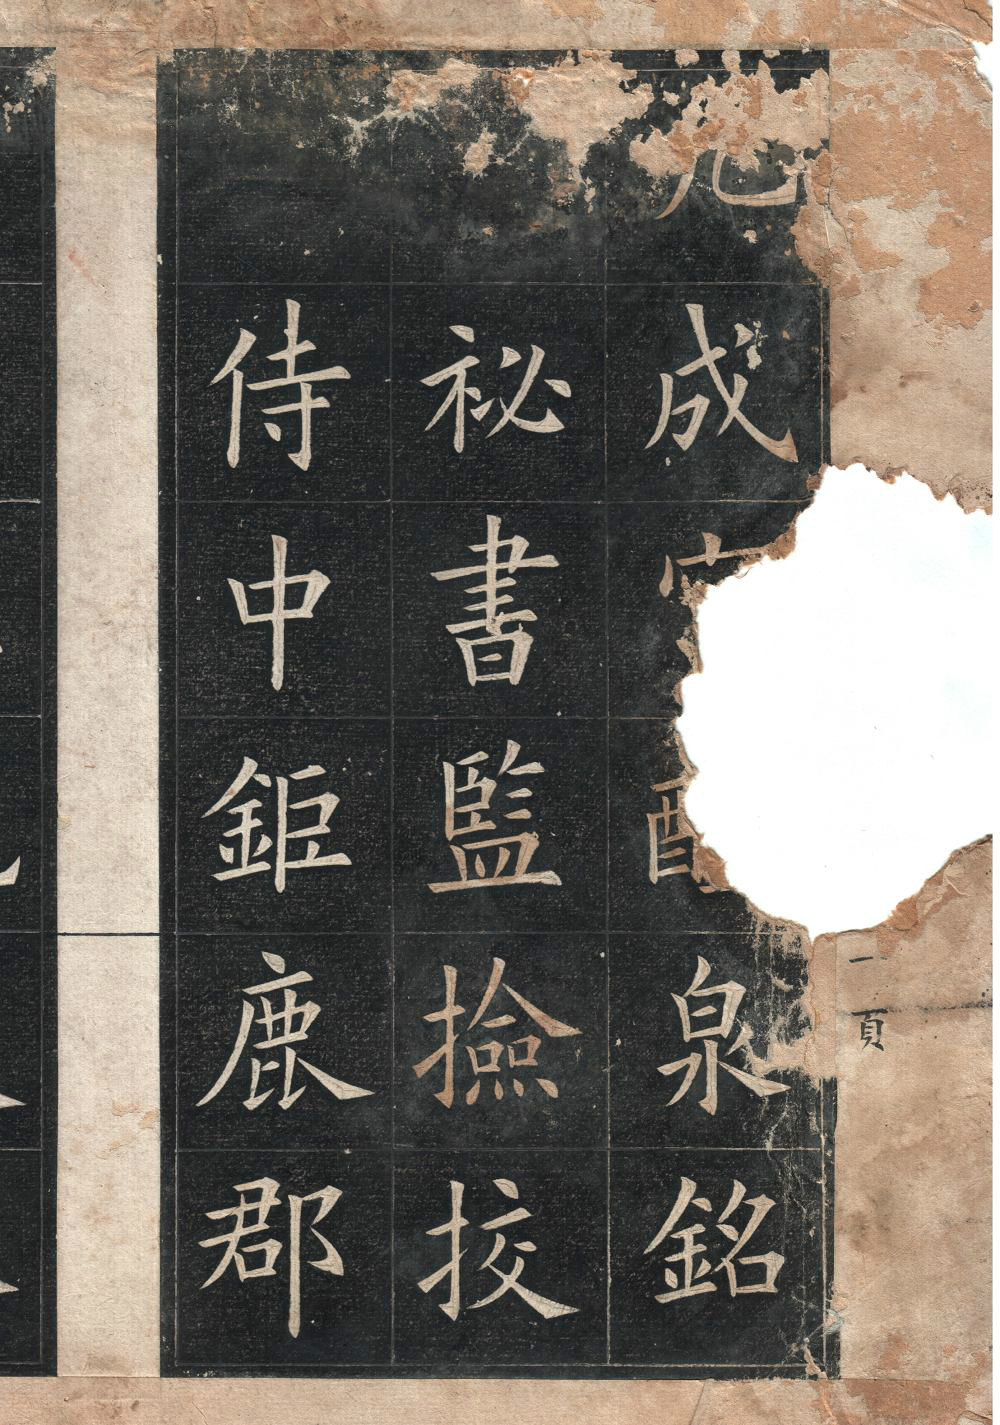 成泉銘
祕書監撿挍
侍中鉅鹿郡
一頁